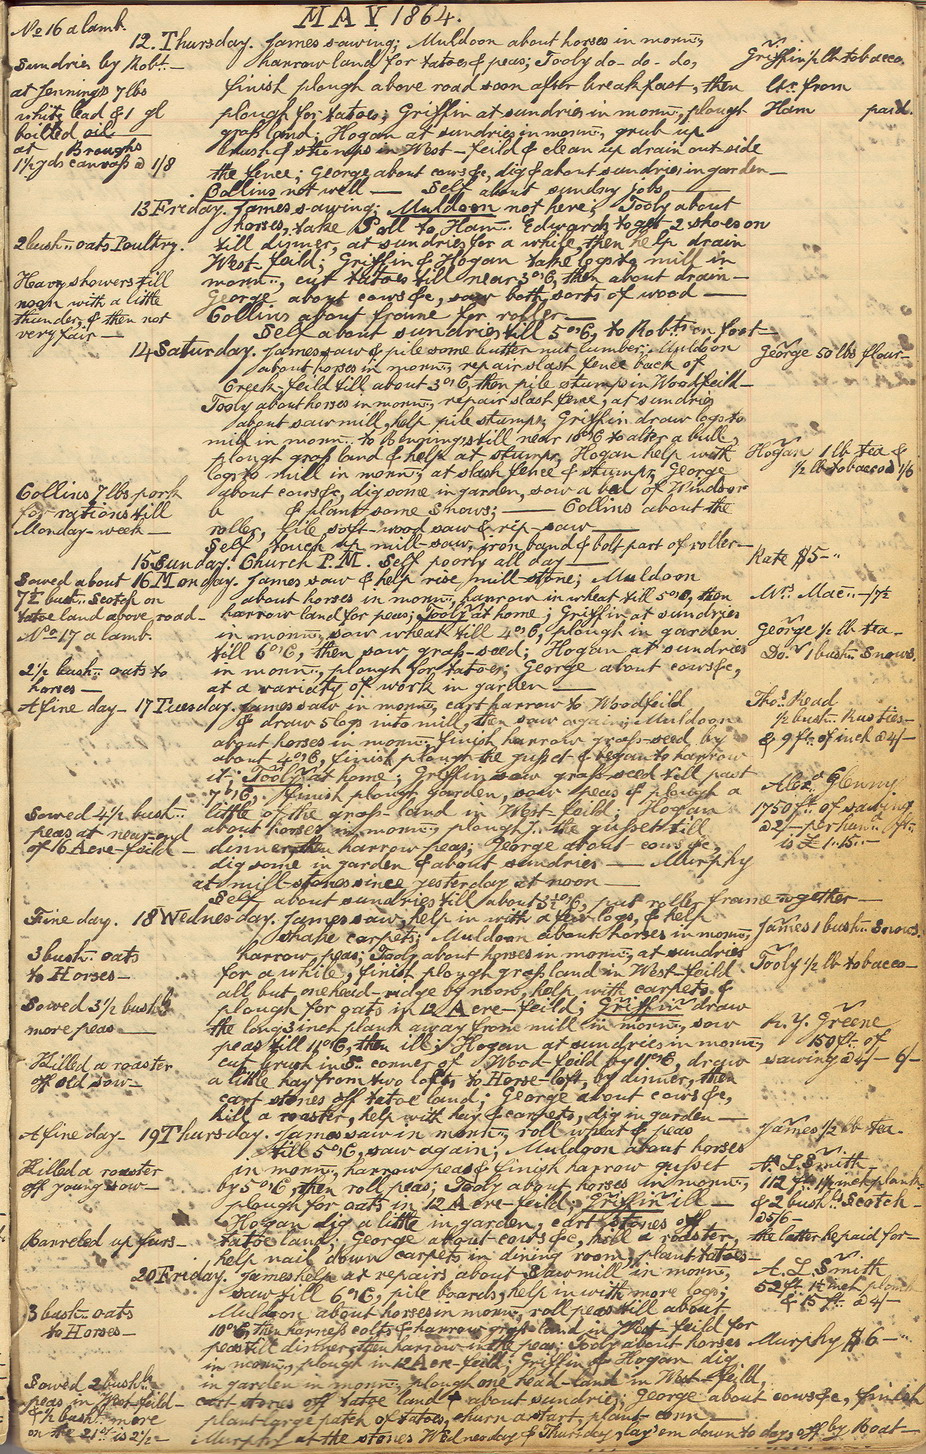 MAY 1864.
No 16 a lamb.
12. Thursday. James sawing; Muldoon about horses in morng,
Sundries by Robt.—
harrow land for tatoes & peas; Tooly do- do- do,
Griffin ½ lb tobacco.
at Jennings 7 lbs
finish plough above road soon after breakfast, then
&c. from
white lead & 1 gl
plough for tatoes; Griffin at sundries in morng, plough
Ham paid.
boiled oil
grass land; Hogan at sundries in morng, grub up
at Broughs
brush & stumps in West-feild & clean up drain out side
1½ yds canvass @ 1/8
the fence; George about cows &c, dig & about sundries in garden—
Collins not well — Self about sundry jobs,
13 Friday. James sawing; Muldoon not here; Tooly about
horses, take Poll to Ham. Edwards to get 2 shoes on
2 bush. oats Poultry.
till dinner, at sundries for a while, then help drain
West-feild; Griffin & Hogan take logs to mill in
Heavy showers till
morng, cut tatoes till near 3 o'C, then about drain—
noon with a little
George about cows &c, saw both sorts of wood—
thunder, & then not
Collins about frame for roller—
very fair—
Self about sundries till 5 o'C, to Robts on foot—
14 Saturday. James saw & pile some butter nut lumber; Muldoon
George 50 lbs flour—
about horses in morng, repair slash fence back of
Creek-feild till about 3 o'C, then pile stumps in Woodfeild—
Tooly about horses in morng, repair slash fence, at sundries
about saw mill, help pile stumps; Griffin draw logs to
mill in morng. to Benging's till near 10 o'C to alter a bull,
plough grass land & help at stumps; Hogan help with
Hogan 1 lb tea &
logs to mill in morng, at slash fence & stumps; George
½ lb tobacco @ 1/6
Collins 7 lbs pork
about cows &c, dig some in garden, sow a bed of Windsor
for rations till
b & plant some Snows; — Collins about the
Monday-week—
roller, file soft-wood saw & rip-saw—
Self touch up mill-saw, iron band & bolt part of roller—
15 Sunday. Church P.M. Self poorly all day—
Kate $5-"
Sowed about
16 Monday. James saw & help rise mill-stone; Muldoon
7½ bush. Scotch on
about horses in morng, harrow in wheat till 5 o'C, then
Mrs. Mac.—/7½
tatoe land above road—
harrow land for peas; Tooly at home; Griffin at sundries
No 17 a lamb.
in morng, sow wheat till 4 o'C, plough in garden
George ½ lb tea—
till 6 o'C, then sow grass-seed; Hogan at sundries
Do. 1 bush. Snows.
2½ bush. oats to
in morng, plough for tatoes; George about cows &c,
horses—
at a variaty of work in garden—
A fine day—
17 Tuesday. James saw in morng, cart harrow to Woodfeild
Thos. Read
& draw 5 logs into mill, then saw again; Muldoon
½ bush. Rusties—
about horses in morng, finish harrow grass-seed by
& 9 ft. of inch @ 4/-
about 4 o'C, finish plough the gusset & began to harrow
it; Tooly at home; Griffin sow grass-seed till past
Alexr. Glenny
7 o'C, finish plough garden, sow peas & plough a
1750 ft. of sawing
Sowed 4½ bush.
little of the grass-land in West-feild; Hogan
@ 2/- per hund. ft.
peas at near-end
about horses in morng, plough the gusset till
is £1.15.—
of 16 Acre-feild—
dinner, then harrow peas; George about cows &c,
dig some in garden & about sundries — Murphy
at mill-stones since yesterday at noon—
Self about sundries till about 5½ o'C, put roller frame together—
Fine day.
18 Wednesday. James saw, help in with a few logs, & help
shake carpets; Muldoon about horses in morng,
James 1 bush. Snows.
3 bush. oats
harrow peas; Tooly about horses in morng, at sundries
to Horses—
for a while, finish plough grass land in West-feild
Tooly ½ lb tobacco—
all but one head-ridge by noon, help with carpets, &
Sowed 3½ bush.
plough for oats in 12 Acre-feild; Griffin draw
more peas—
the long 3 inch plank away from mill in morng, sow
R. Y. Greene
peas till 11 o'C, then ill; Hogan at sundries in morng,
150 ft. of
Killed a roaster
cut brush in S. conner of Wood-feild by 11 o'C, draw
sawing @ 4/- 6/-
off old sow—
a little hay from two lofts to Horse-loft, by dinner, then
cart stones off tatoe land; George about cows &c,
kill a roaster, help with hay & carpets, dig in garden—
A fine day—
19 Thursday. James saw in morng, roll wheat & peas
James ½ lb tea.
till 5 o'C, saw again; Muldoon about horses
Killed a roaster
in morng, harrow peas & finish harrow gusset
A. L. Smith
off young sow—
by 5 o'C, then roll peas; Tooly about horses in morng,
112 ft. 1½ inch plank
plough for oats in 12 Acre-feild; Griffin ill—
& 2 bush. Scotch—
Hogan dig a little in garden, cart stones off
@ 5/6
Barreled up furs—
tatoe land; George about cows &c, kill a roaster,
the latter he paid for—
help nail down carpets in dining room, plant tatoes—
20 Friday. James help at repairs about Sawmill in morng,
A. L. Smith
saw till 6 o'C, pile boards, help in with more logs;
52 ft. 1½ inch plank
3 bush. oats
Muldoon about horses in morng, roll peas till about
& 15 ft. @ 4/-
to Horses—
10 o'C, then harness colts & harrow grass land in West-feild for
peas till dinner, then harrow in the peas; Tooly about horses
Murphy $6-"
in morng, plough in 12 Acre-feild; Griffin & Hogan dig
Sowed 2 bush.
in garden in morng, plough one head-land in West-feild,
peas in West-feild—
cart stones off tatoe land & about sundries; George about cows &c, finish
& ½ bush. more
plant large patch of tatoes, churn a start, plant corn—
on the 21st is 2½—
Murphy at the stones Wednesday & Thursday, lay'em down to day, off by Boat—